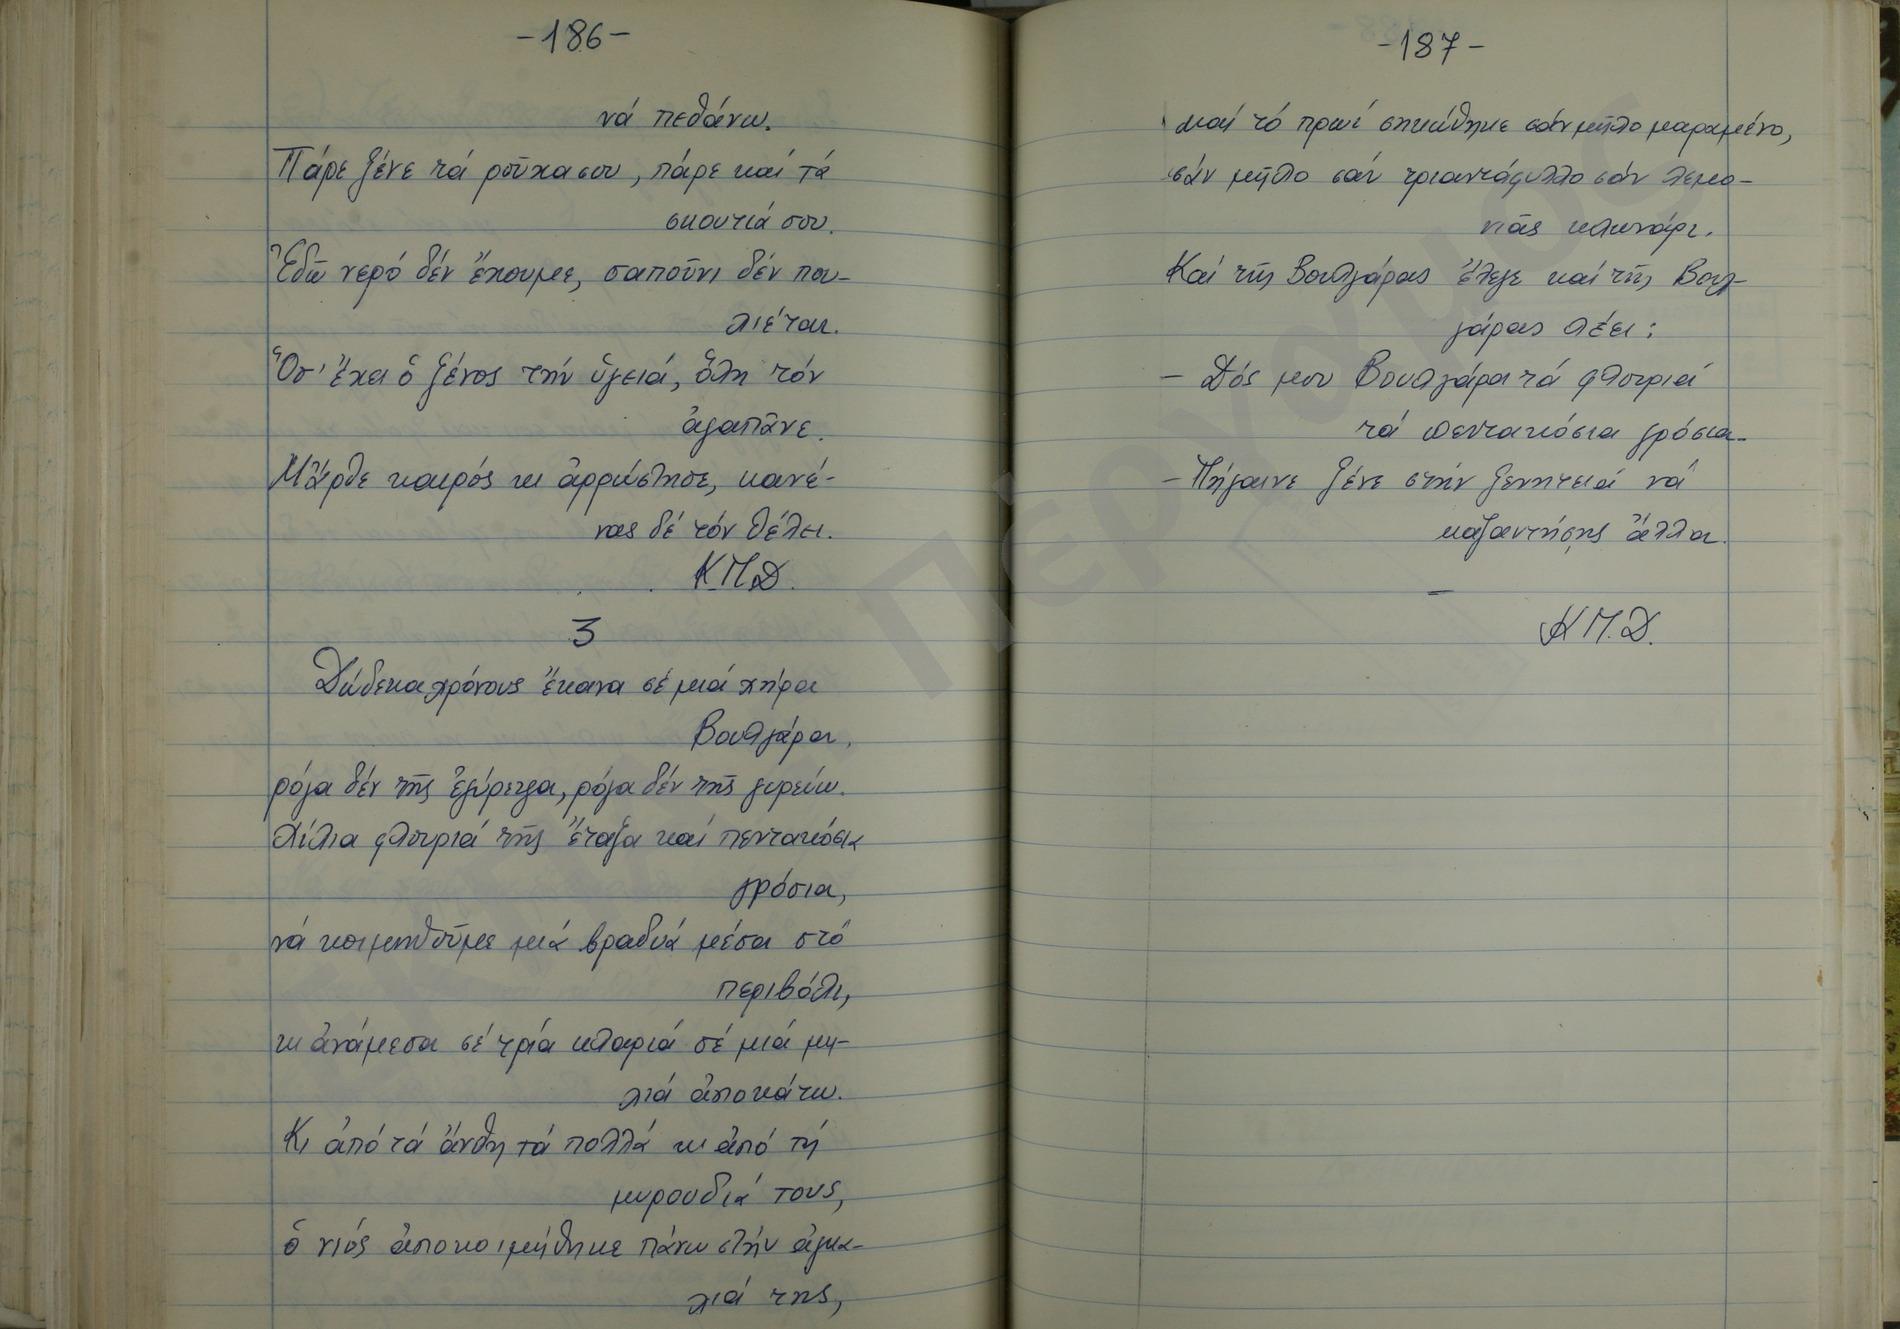 -186-
νά πεθάνω.
Πάρε ξένε τά ροῦχα σου, πάρε καί τά
σκουτιά σου.
Ἐδῶ νερό δέν ἔχουμε, σαποῦνι δέν που-
λιέται.
Ὅσ' ἔχει ὁ ξένος τήν ὑγειά, ὅλη τόν
ἀγαπᾶνε.
Μἄρθε καιρός κι ἀρρώστησε, κανέ-
νας δέ τόν θέλει.
Κ.Π.Δ.
3
Δώδεκα χρόνους ἔκανα σέ μιά χήρα
Βουλγάρα,
ρόγα δέν τῆς ἐγύρεψα, ρόγα δέν τῆς γυρεύω.
Χίλια φλουριά τῆς ἔταξα καί πεντακόσια
γρόσια,
νά κοιμηθοῦμε μιά βραδυά μέσα στό
περιβόλι,
κι ἀνάμεσα σέ τρία κλαριά σέ μιά μη-
λιά ἀποκάτω.
Κι ἀπό τά ἄνθη τά πολλά κι ἀπό τή
μυρουδιά τους,
ὁ νιός ἀποκοιμήθηκε πάνω στήν ἀγκα-
λιά της,
-187-
καί τό πρωί σηκώθηκε σάν μῆλο μαραμένο,
σάν μῆλο σάν τριαντάφυλλο σάν λεμο-
νιᾶς κλωνάρι.
Καί τῆς Βουλγάρας ἔλεγε καί τῆς Βουλ-
γάρας λέει:
- Δός μου Βουλγάρα τά φλουριά
τά πεντακόσια γρόσια.
- Πήγαινε ξένε στήν ξενητειά νά
καζαντήσης ἄλλα.
Κ.Π.Δ.